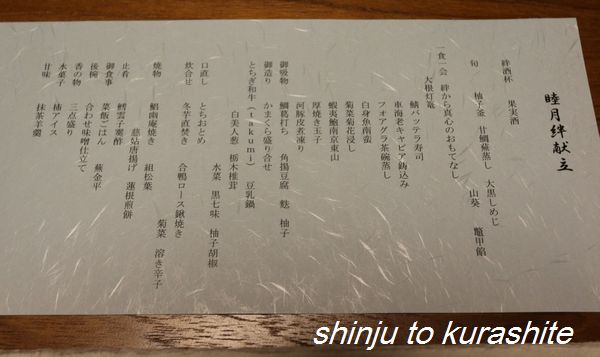 睦月絆献立
絆酒杯 果実酒
旬 柚子釜 甘鯛蕪蒸し 大黒しめじ
山葵 鼈甲餡
一食一会 絆から真心のおもてなし
大根灯篭
鯖バッテラ寿司
車海老キャビア鋳込み
フォアグラ茶碗蒸し
白身魚南蛮
菊菜菊花浸し
蝦夷鮑南京東山
厚焼き玉子
河豚皮煮凍り
御吸物 鯛葛打ち 角揚豆腐 麩 柚子
御造り かまくら盛り合せ
とちぎ和牛(takumi) 豆乳鍋
白美人葱 栃木椎茸
水菜 黒七味 柚子胡椒
口直し とちおとめ
炊合せ 冬芋直焚き 合鴨ロース鍬焼き
菊菜 溶き辛子
焼物 鯧幽庵焼き 組松葉
慈姑唐揚げ 蓮根煎餅
止肴 鱈雲子霙酢
御食事 菜飯ごはん 蕪金平
後椀 合わせ味噌仕立て
香の物 三点盛り
水菓子 柿アイス
甘味 抹茶羊羹
shinju to kurashite